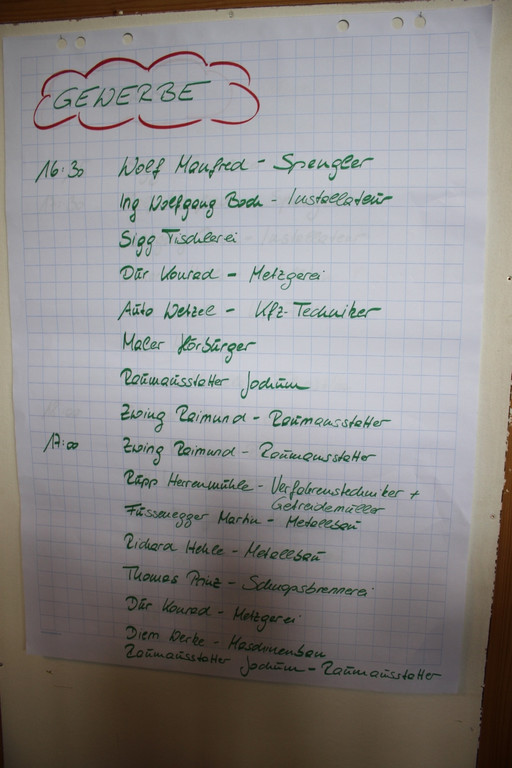 GEWERBE
16:30 Wolf Manfred - Spengler
Ing Wolfgang Bock - Installateur
Sigg Tischlerei
Dür Konrad - Metzgerei
Auto Wetzel - Kfz-Techniker
Maler Hörburger
Raumausstatter Jochum
Zwing Raimund - Raumausstatter
17:00 Zwing Raimund - Raumausstatter
Rupp Herrenmühle - Verfahrenstechniker +
Getreidemüller
Füssenegger Martin - Metallbau
Richard Hehle - Metallbau
Thomas Prinz - Schnapsbrennerei
Dür Konrad - Metzgerei
Diem Werke - Maschinenbau
Raumausstatter Jochum - Raumausstatter